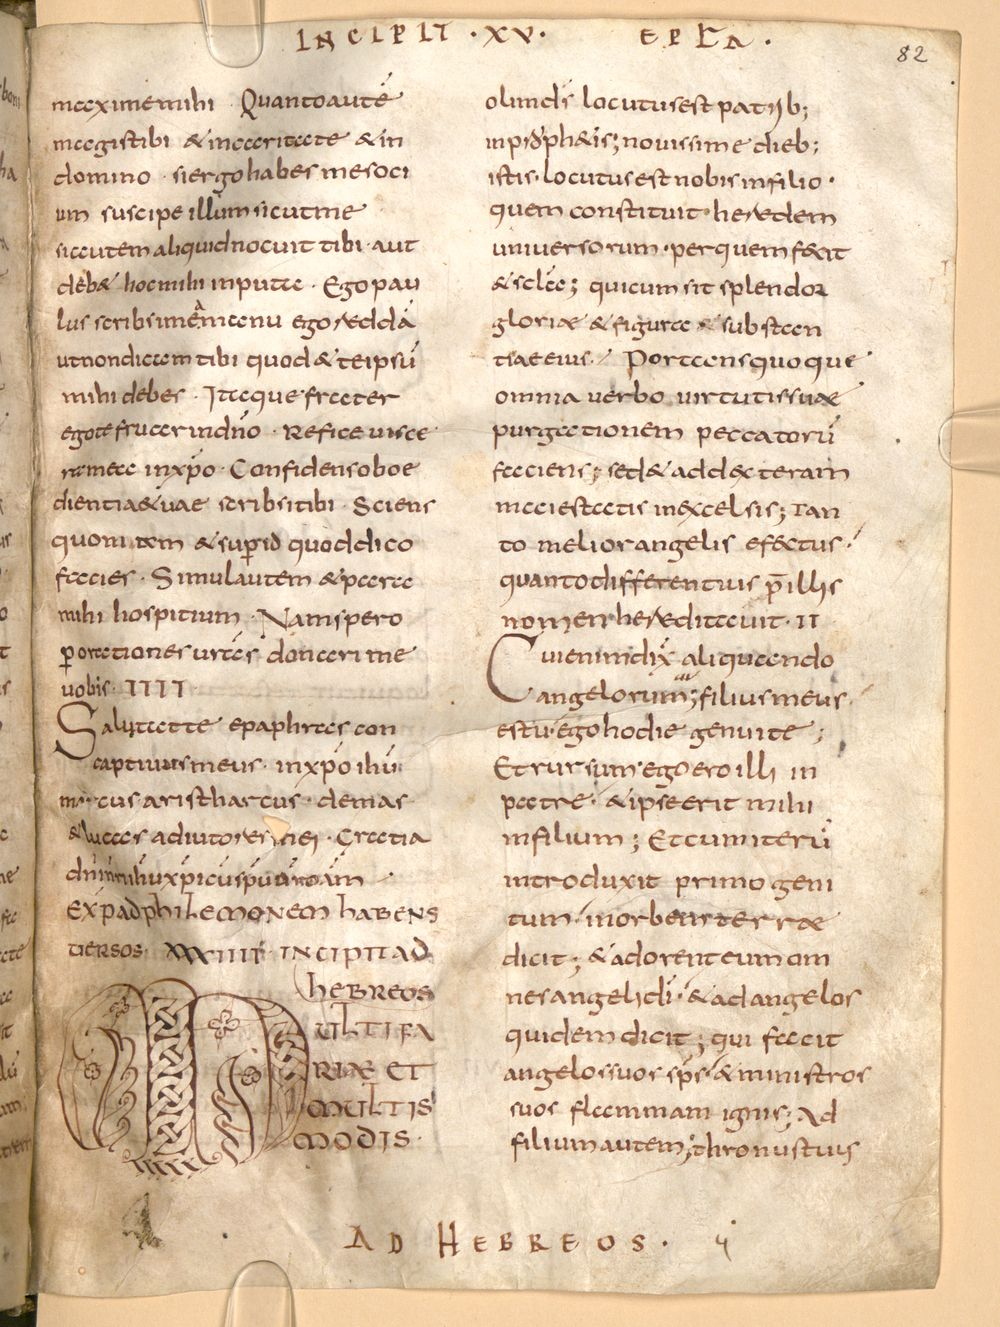 INCIPIT ·XV· EPLA ·
82
maxime mihi · Quanto autē
magis tibi & in carnate & in
domino · si ergo habes me soci
um suscipe illum sicut me
si autem aliquid nocuit tibi · aut
debet hoc mihi inputa · Ego pau
lus scribsi mea manu ego reddā
ut non dicam tibi quod & te ipsū
mihi debes · Itaque frater
ego te fruar in dño · Refice visce
ra mea in xp̄o · Confidens oboe
dientia tuae scribsi tibi · Sciens
quoniam & super id quod dico
facies · Simul autem & para
mihi hospitium · Nam spero
p̱ orationes vr̄as donari me
vobis · IIII
Salutat te epaphras con
captivus meus · in xp̄o ihū
marcus aristharcus · demas
& lucas adiutores mei · Gratia
dn̄i nr̄i ihū xp̄i cū sp̄u vr̄o am̄
EXP AD PHILEMONEM HABENS
VERSOS XXXVIIII INCIPIT AD
HEBREOS
MULTIFA
RIAE ET
MULTIS
MODIS ·
olim dš locutus est patrib;
in prophetis; novissime dieb;
istis · locutus est nobis in filio ·
quem constituit · heredem
universorum · per quem fecit
& sc̄la; qui cum sit splendor
gloriae & figura & substan
tiae eius · Portans quoque
omnia verbo virtutis suae
purgationem peccatorū
faciens; sed & ad dexteram
maiestatis in excelsis; Tan
to melior angelis efectus ·
quanto differentius p̄ illis
nomen hereditavit · II
Cui enim dix̄ aliquando
angelorum; filius meus
es tu · ego hodie genui te ;
Et rursum · ego ero illi in
patre · & ipse erit mihi
in filium ; Et cum iterū
introduxit primogeni
tum · in orbem terrae
dicit ; & adorent eum om
nes angeli di · & ad angelos
quidem dicit ; qui facit
angelos suos sp̄s · & ministros
suos flammam ignis; Ad
filium autem; thronus tuus
AD HEBREOS ·